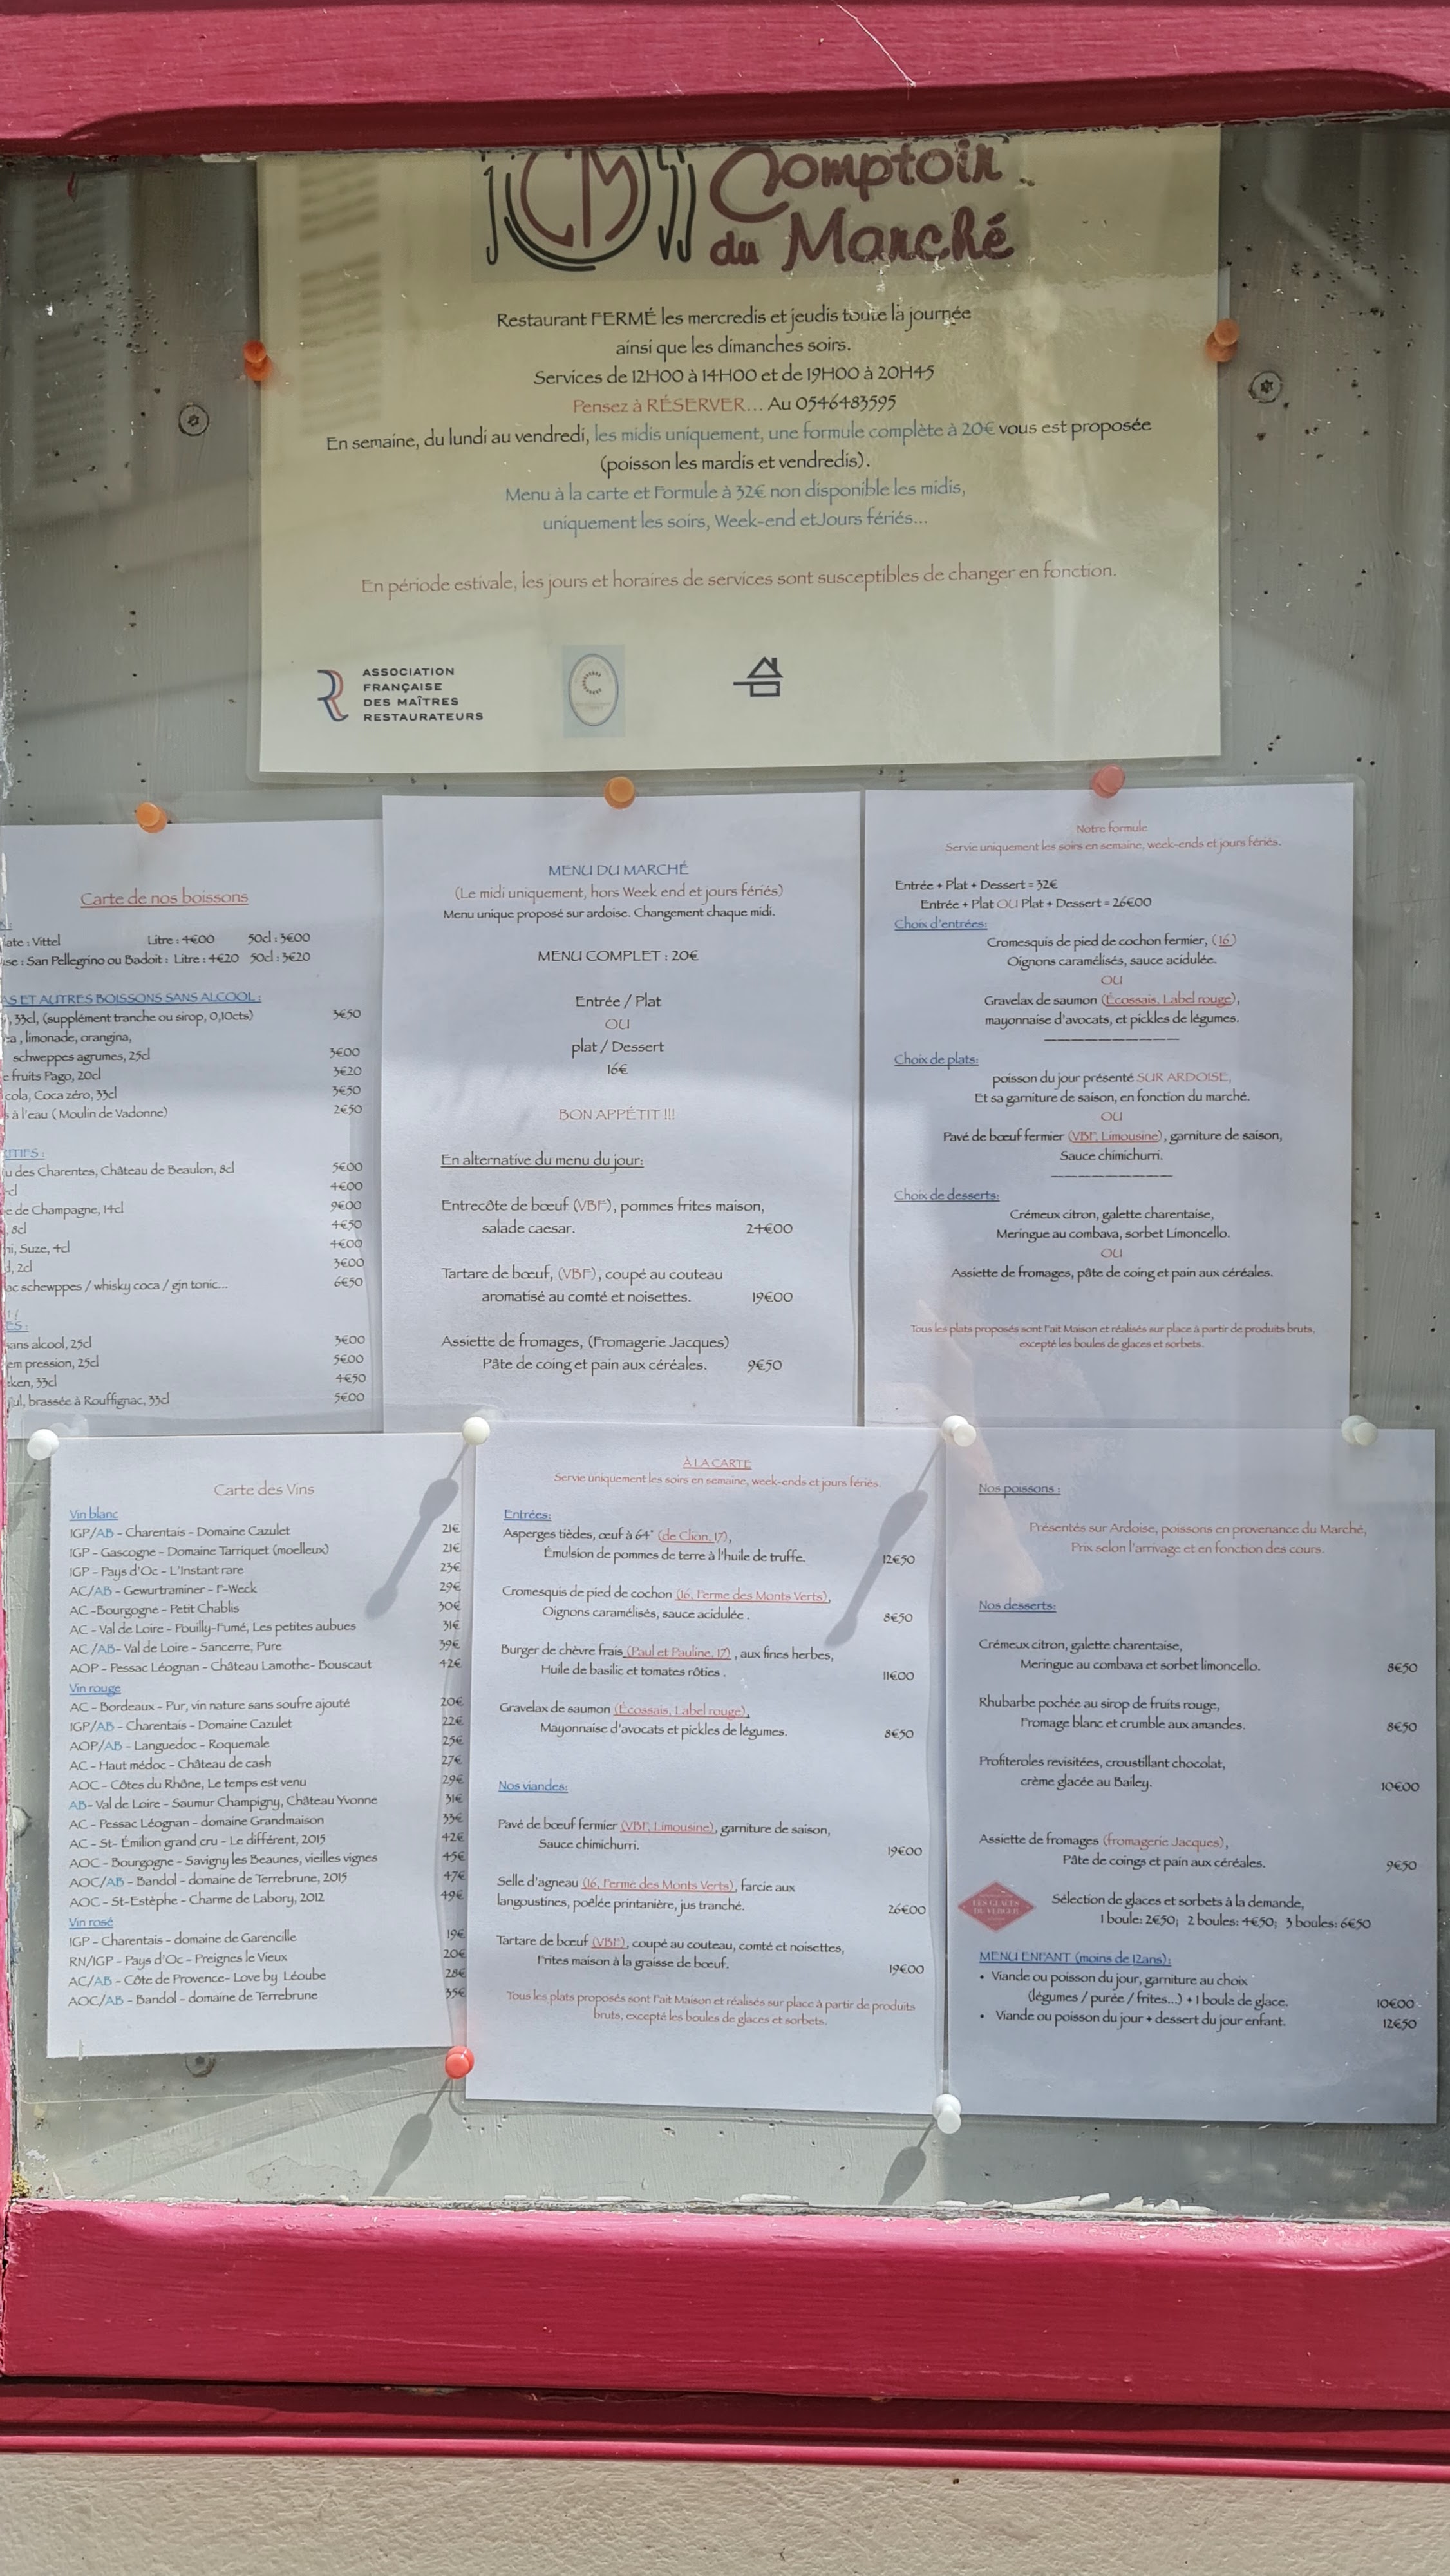 Comptoir
du Marché
Restaurant FERMÉ les mercredis et jeudis toute la journée
ainsi que les dimanches soirs.
Services de 12H00 à 14H00 et de 19H00 à 20H45
Pensez à RÉSERVER... Au 0546483595
En semaine, du lundi au vendredi, les midis uniquement, une formule complète à 20€ vous est proposée
(poisson les mardis et vendredis).
Menu à la carte et Formule à 32€ non disponible les midis,
uniquement les soirs, Week-end et Jours fériés...
En période estivale, les jours et horaires de services sont susceptibles de changer en fonction.
ASSOCIATION
FRANÇAISE
DES MAÎTRES
RESTAURATEURS
Carte de nos boissons
: Vittel Litre : 4€00 50cl : 3€00
: San Pellegrino ou Badoit : Litre : 4€20 50cl : 3€20
ET AUTRES BOISSONS SANS ALCOOL :
33cl, (supplément tranche ou sirop, 0,10cts) 3€50
, limonade, orangina,
schweppes agrumes, 25cl 3€00
fruits Pago, 20cl 3€20
cola, Coca zéro, 33cl 3€50
à l'eau ( Moulin de Vadonne) 2€50
des Charentes, Château de Beaulon, 8cl 5€00
4€00
de Champagne, 14cl 9€00
8cl 4€50
, Suze, 4cl 4€00
, 2cl 3€00
schewppes / whisky coca / gin tonic... 6€50
sans alcool, 25cl 3€00
pression, 25cl 5€00
, 33cl 4€50
, brassée à Rouffignac, 33cl 5€00
MENU DU MARCHÉ
(Le midi uniquement, hors Week end et jours fériés)
Menu unique proposé sur ardoise. Changement chaque midi.
MENU COMPLET : 20€
Entrée / Plat
OU
plat / Dessert
16€
BON APPÉTIT !!!
En alternative du menu du jour:
Entrecôte de bœuf (VBF), pommes frites maison,
salade caesar. 24€00
Tartare de bœuf, (VBF), coupé au couteau
aromatisé au comté et noisettes. 19€00
Assiette de fromages, (Fromagerie Jacques)
Pâte de coing et pain aux céréales. 9€50
Notre formule
Servie uniquement les soirs en semaine, week-ends et jours fériés.
Entrée + Plat + Dessert = 32€
Entrée + Plat OU Plat + Dessert = 26€00
Choix d'entrées:
Cromesquis de pied de cochon fermier, (16)
Oignons caramélisés, sauce acidulée.
OU
Gravelax de saumon (Écossais, Label rouge),
mayonnaise d'avocats, et pickles de légumes.
Choix de plats:
poisson du jour présenté SUR ARDOISE,
Et sa garniture de saison, en fonction du marché.
OU
Pavé de bœuf fermier (VBF, Limousine), garniture de saison,
Sauce chimichurri.
Choix de desserts:
Crémeux citron, galette charentaise,
Meringue au combava, sorbet Limoncello.
OU
Assiette de fromages, pâte de coing et pain aux céréales.
Tous les plats proposés sont Fait Maison et réalisés sur place à partir de produits bruts,
excepté les boules de glaces et sorbets.
Carte des Vins
Vin blanc
IGP/AB - Charentais - Domaine Cazulet 21€
IGP - Gascogne - Domaine Tarriquet (moelleux) 21€
IGP - Pays d'Oc - L'Instant rare 23€
AC/AB - Gewurtraminer - F-Weck 29€
AC -Bourgogne - Petit Chablis 30€
AC - Val de Loire - Pouilly-Fumé, Les petites aubues 31€
AC /AB- Val de Loire - Sancerre, Pure 39€
AOP - Pessac Léognan - Château Lamothe- Bouscaut 42€
Vin rouge
AC - Bordeaux - Pur, vin nature sans soufre ajouté 20€
IGP/AB - Charentais - Domaine Cazulet 22€
AOP/AB - Languedoc - Roquemale 25€
AC - Haut médoc - Château de cash 27€
AOC - Côtes du Rhône, Le temps est venu 29€
AB- Val de Loire - Saumur Champigny, Château Yvonne 31€
AC - Pessac Léognan - domaine Grandmaison 33€
AC - St- Émilion grand cru - Le différent, 2015 42€
AOC - Bourgogne - Savigny les Beaunes, vieilles vignes 45€
AOC/AB - Bandol - domaine de Terrebrune, 2015 47€
AOC - St-Estèphe - Charme de Labory, 2012 49€
Vin rosé
IGP - Charentais - domaine de Garencille 19€
RN/IGP - Pays d'Oc - Preignes le Vieux 20€
AC/AB - Côte de Provence- Love by Léoube 28€
AOC/AB - Bandol - domaine de Terrebrune 35€
À LA CARTE
Servie uniquement les soirs en semaine, week-ends et jours fériés.
Entrées:
Asperges tièdes, œuf à 64° (de Clion, 17),
Émulsion de pommes de terre à l'huile de truffe. 12€50
Cromesquis de pied de cochon (16, Ferme des Monts Verts),
Oignons caramélisés, sauce acidulée . 8€50
Burger de chèvre frais (Paul et Pauline, 17) , aux fines herbes,
Huile de basilic et tomates rôties . 11€00
Gravelax de saumon (Écossais, Label rouge),
Mayonnaise d'avocats et pickles de légumes. 8€50
Nos viandes:
Pavé de bœuf fermier (VBF, Limousine), garniture de saison,
Sauce chimichurri. 19€00
Selle d'agneau (16, Ferme des Monts Verts), farcie aux
langoustines, poêlée printanière, jus tranché. 26€00
Tartare de bœuf (VBF), coupé au couteau, comté et noisettes,
Frites maison à la graisse de bœuf. 19€00
Tous les plats proposés sont Fait Maison et réalisés sur place à partir de produits
bruts, excepté les boules de glaces et sorbets.
Nos poissons :
Présentés sur Ardoise, poissons en provenance du Marché,
Prix selon l'arrivage et en fonction des cours.
Nos desserts:
Crémeux citron, galette charentaise,
Meringue au combava et sorbet limoncello. 8€50
Rhubarbe pochée au sirop de fruits rouge,
Fromage blanc et crumble aux amandes. 8€50
Profiteroles revisitées, croustillant chocolat,
crème glacée au Bailey. 10€00
Assiette de fromages (fromagerie Jacques),
Pâte de coings et pain aux céréales. 9€50
LES GLACES
DU VERGER
Sélection de glaces et sorbets à la demande,
1 boule: 2€50; 2 boules: 4€50; 3 boules: 6€50
MENU ENFANT (moins de 12ans):
• Viande ou poisson du jour, garniture au choix
(légumes / purée / frites...) + 1 boule de glace. 10€00
• Viande ou poisson du jour + dessert du jour enfant. 12€50